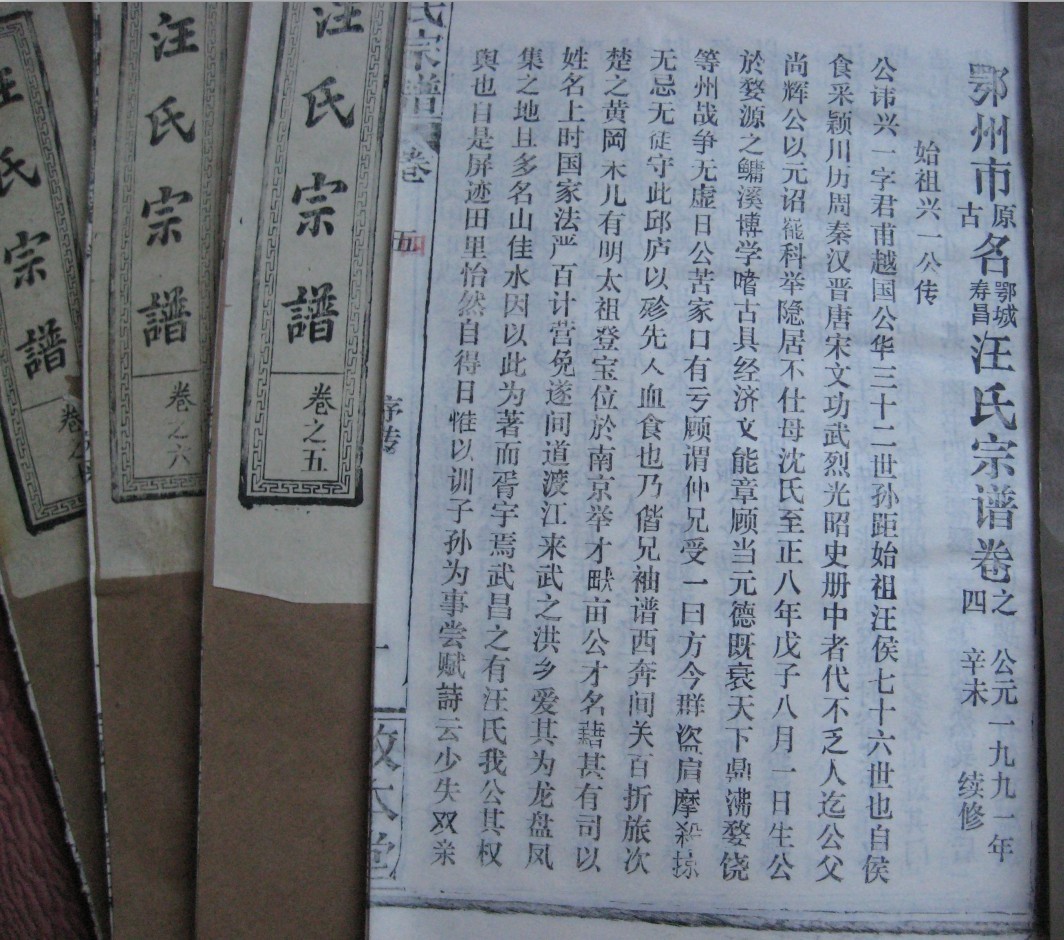 鄂州市原古名鄂城寿昌汪氏宗谱卷之四 公元一九九一年辛未 续修
始祖兴一公传
公讳兴一字君甫越国公华三十二世孙距始祖汪侯七十六世也自侯
食采颖川历周秦汉晋唐宋文功武烈光昭史册中者代不乏人迄公父
尚辉公以元诏罷科举隐居不仕母沈氏至正八年戊子八月一日生公
於婺源之鳙溪博学嗜古具经济文能章顾当元德既衰天下鼎沸婺饶
等州战争无虚日公苦家口有亏顾谓仲兄受一曰方今群盗肩摩殺掠
无忌无徒守此邱庐以殄先人血食也乃偕兄袖谱西奔间关百折旅次
楚之黄冈未几有明太祖登宝位於南京举才畎亩公才名藉甚有司以
姓名上时国家法严百计营免遂间道渡江来武之洪乡爱其为龙盘凤
集之地且多名山佳水因以此为著而胥宇焉武昌之有汪氏我公其权
舆也自是屏迹田里怡然自得日惟以训子孙为事尝赋詩云少失双亲
氏宗譜
卷
五
序传
一
敦本堂
汪氏宗譜
卷之五
汪氏宗譜
卷之六
汪氏宗譜
卷之